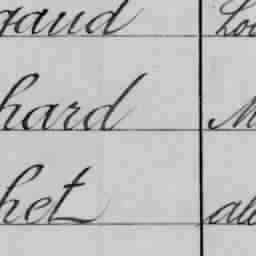 gaud Lou
hard M
het ale